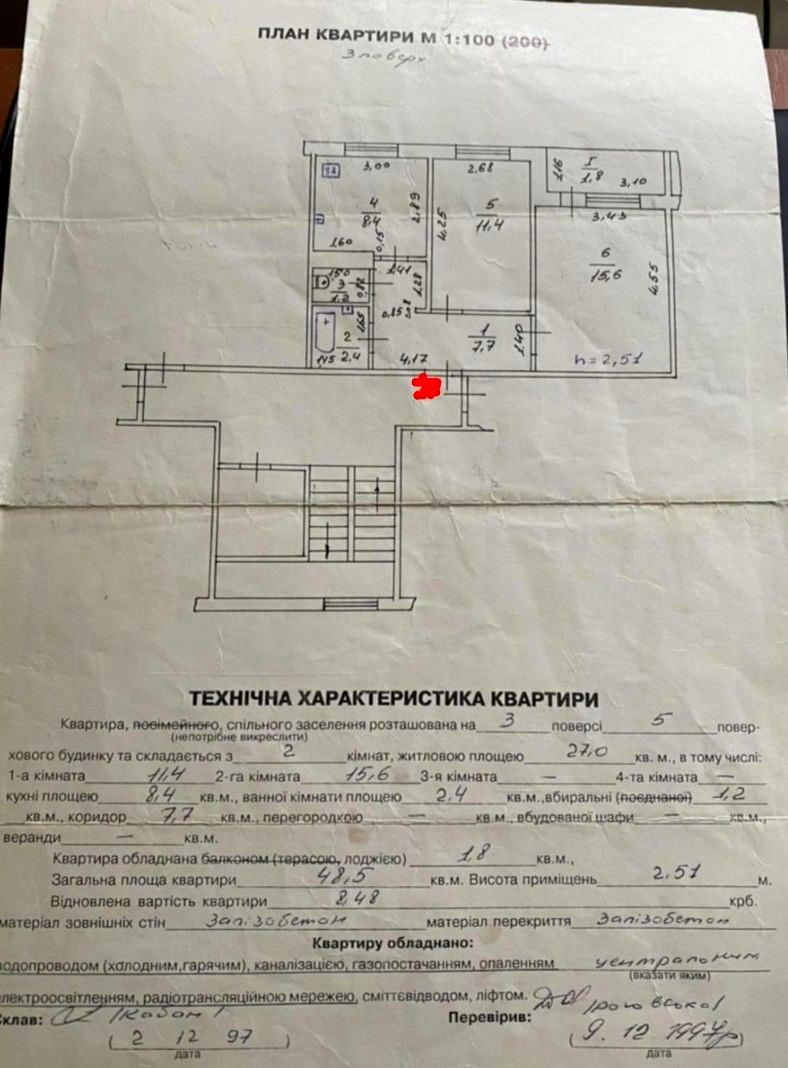 ПЛАН КВАРТИРИ М 1:100 (200)
3 поверх
3,00
2,68
I
1,8
1,16
3,10
4
8,4
2,89
5
11,4
4,25
3,43
6
15,6
4,55
1,60
0,15
1,41
1,28
1,50
3
1,2
0,82
0,85
1,65
2
2,4
1,45
4,17
1
7,7
1,40
h = 2,51
ТЕХНІЧНА ХАРАКТЕРИСТИКА КВАРТИРИ
Квартира, посімейного, спільного заселення розташована на 3 поверсі 5 повер-
(непотрібне викреслити)
хового будинку та складається з 2 кімнат, житловою площею 27,0 кв. м., в тому числі:
1-а кімната 11,4 2-га кімната 15,6 3-я кімната — 4-та кімната —
кухні площею 8,4 кв.м., ванної кімнати площею 2.4 кв.м.,вбиральні (поєднаної) 1,2
кв.м., коридор 7,7 кв.м., перегородкою — кв.м., вбудованої шафи — кв.м.,
веранди — кв.м.
Квартира обладнана балконом (терасою, лоджією) 1,8 кв.м.,
Загальна площа квартири 48,5 кв.м. Висота приміщень 2.51 м.
Відновлена вартість квартири 8,48 крб.
матеріал зовнішніх стін Залізобетон матеріал перекриття Залізобетон
Квартиру обладнано:
водопроводом (холодним,гарячим), каналізацією, газопостачанням, опаленням центральним
(вказати яким)
електроосвітленням, радіотрансляційною мережею, сміттєвідводом, ліфтом.
Склав: Перевірив:
( 2 12 97 ) ( 9. 12 1997р )
дата дата